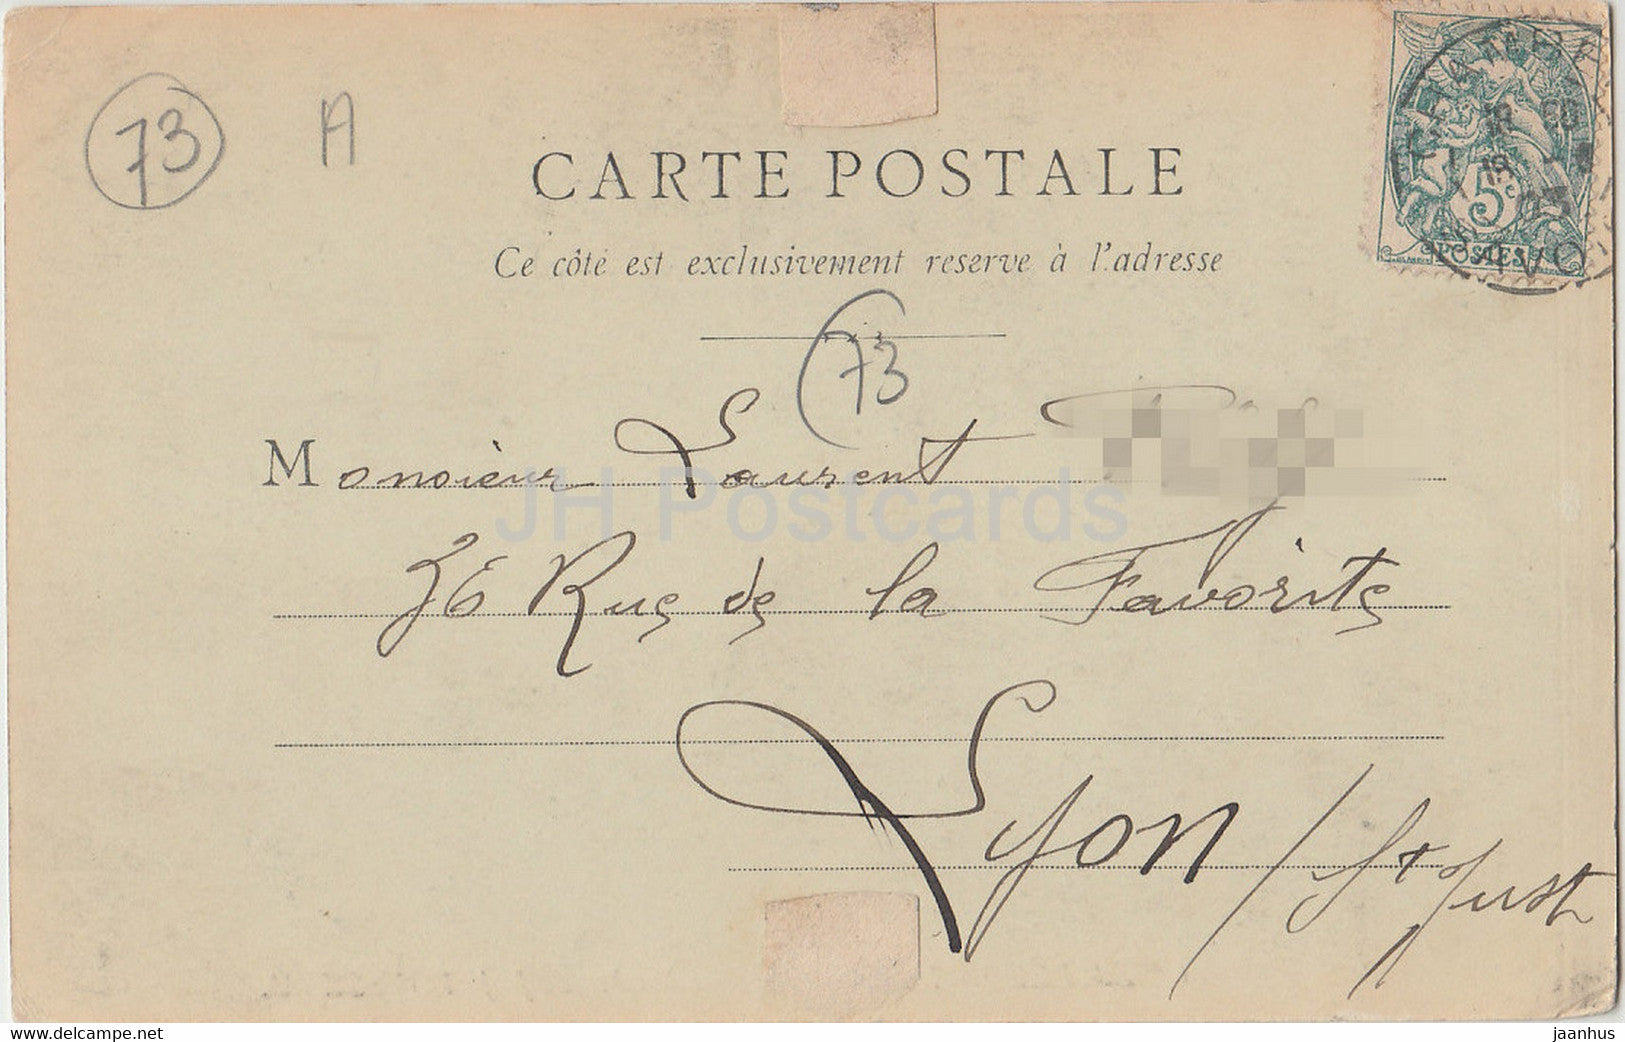 73
A
CARTE POSTALE
Ce côté est exclusivement reservé à l'adresse
5c
POSTES
73
Monsieur Laurent
36 Rue de la Favorite
Lyon / St Just
JH Postcards
www.hipposcards.com
jaanhus